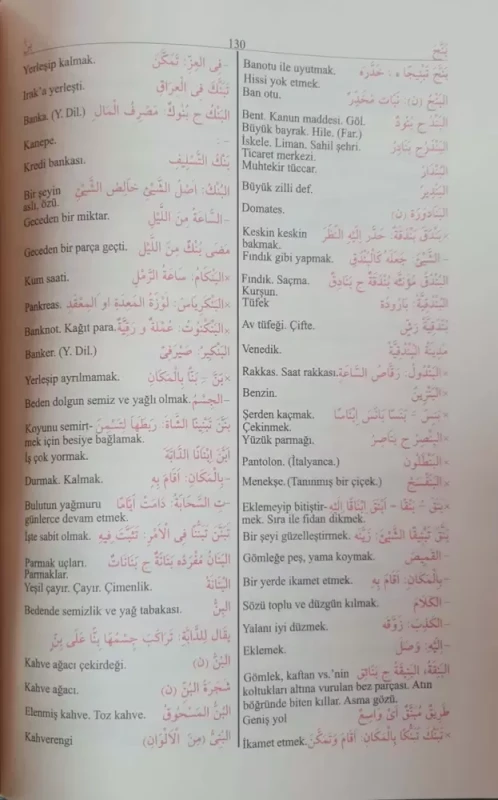 بَنَّجَ
130
بَنَّ
بَنَّجَ تَبْنِيجًا ه : خَدَّرَهُ
Banotu ile uyutmak.
Hissi yok etmek.
اَلْبَنْجُ (ن): نَبَات مُخَدِّرٌ
Ban otu.
اَلْبَنْدُ ج بُنُودٌ
Bent. Kanun maddesi. Göl.
Büyük bayrak. Hile. (Far.)
اَلْبَنْدَرُ ج بَنَادِرُ
İskele. Liman. Sahil şehri.
Ticaret merkezi.
اَلْبُنْدَارُ
Muhtekir tüccar.
اَلْبَنْدِيرُ
Büyük zilli def.
اَلْبَنَادُورَةُ (ن)
Domates.
×بَنْدَقَ بَنْدَقَةً: حَدَّرَ اِلَيْهِ النَّظَرَ
Keskin keskin
bakmak.
–الشَّيْئَ: جَعَلَهُ كَالْبُنْدُقِ
Fındık gibi yapmak.
اَلْبُنْدُقُ مُؤَنَّثُهُ بُنْدُقَةٌ ج بَنَادِقُ
Fındık. Saçma.
Kurşun.
اَلْبُنْدُقِيَّةُ: بَارُودَة
Tüfek
بُنْدُقِيَّةُ رَشٍّ
Av tüfeği. Çifte.
مَدِينَةُ الْبُنْدُقِيَّةِ
Venedik.
×اَلْبَنْدُولُ: رَقَّاصُ السَّاعَةِ
Rakkas. Saat rakkası.
×اَلْبَنْزِينُ
Benzin.
Şerden kaçmak.
Çekinmek.
اَلْبِنْصِرُ ج بَنَاصِرُ
Yüzük parmağı.
×اَلْبَنْطَلُونُ
Pantolon. (İtalyanca.)
×اَلْبَنَفْسَجُ
Menekşe. (Tanınmış bir çiçek.)
Eklemeyip bitiştir-
mek. Sıra ile fidan dikmek.
Bir şeyi güzelleştirmek.
–الْقَمِيصَ
Gömleğe peş, yama koymak.
–بِالْمَكَانِ: اَقَامَ بِهِ
Bir yerde ikamet etmek.
–الْكَلَامَ
Sözü toplu ve düzgün kılmak.
–الْكَذِبَ: زَوَّقَهُ
Yalanı iyi düzmek.
–اِلَيْهِ: وَصَلَ
Eklemek.
اَلْبَنِقَةُ، اَلْبَنِيقَةُ ج بَنَائِقُ
Gömlek, kaftan vs.'nin
koltukları altına vurulan bez parçası. Atın
böğründe biten kıllar. Asma gözü.
Geniş yol
×تَبَنَّكَ تَبَنُّكًا بِالْمَكَانِ: اَقَامَ وَتَمَكَّنَ
İkamet etmek.
–فِى الْعِزِّ: تَمَكَّنَ
Yerleşip kalmak.
تَبَنَّكَ فِى الْعِرَاقِ
Irak'a yerleşti.
اَلْبَنْكُ ج بُنُوكٌ: مَصْرِفُ الْمَالِ
Banka. (Y. Dil.)
– :
Kanepe.
بَنْكُ التَّسْلِيفِ
Kredi bankası.
اَلْبُنْكُ: اَصْلُ الشَّيْئِ خَالِصُ الشَّيْئِ
Bir şeyin
aslı, özü.
–السَّاعَةُ مِنَ اللَّيْلِ
Geceden bir miktar.
مَضَى بُنْكٌ مِنَ اللَّيْلِ
Geceden bir parça geçti.
×اَلْبَنْكَامُ: سَاعَةُ الرَّمْلِ
Kum saati.
×اَلْبَنْكَرِيَاسُ: لَوْزَةُ الْمَعِدَةِ اَوِ الْمَعْقَدِ
Pankreas.
×اَلْبَنْكَنُوتُ: عُمْلَةٌ وَرَقِيَّةٌ
Banknot. Kağıt para.
اَلْبَنْكِيرُ: صَيْرَفِىٌّ
Banker. (Y. Dil)
×بَنَّ – بَنًّا بِالْمَكَانِ
Yerleşip ayrılmamak.
–الْجِسْمُ
Beden dolgun semiz ve yağlı olmak.
بَنَّنَ تَبْنِينًا الشَّاةَ: رَبَطَهَا لِتَسْمِنَ
Koyunu semirt-
mek için besiye bağlamak.
اَبَنَّ اِبْنَانًا الدَّابَّةَ
İş çok yormak.
–بِالْمَكَانِ: اَقَامَ بِهِ
Durmak. Kalmak.
–تِ السَّحَابَةُ: دَامَتْ اَيَّامًا
Bulutun yağmuru
günlerce devam etmek.
تَبَنَّنَ تَبَنُّنًا فِى الْاَمْرِ: تَثَبَّتَ فِيهِ
İşte sabit olmak.
اَلْبَنَانُ مُفْرَدُهُ بَنَانَةٌ ج بَنَانَاتٌ
Parmak uçları.
Parmaklar.
اَلْبُنَانَةُ
Yeşil çayır. Çayır. Çimenlik.
اَلْبِنُّ
Bedende semizlik ve yağ tabakası.
يُقَالُ لِلدَّابَّةِ: تَرَاكَبَ جِسْمُهَا بِنًّا عَلَى بِنٍّ
اَلْبُنُّ (ن)
Kahve ağacı çekirdeği.
شَجَرَةُ الْبُنِّ (ن)
Kahve ağacı.
اَلْبُنُّ الْمَسْحُوقُ
Elenmiş kahve. Toz kahve.
اَلْبُنِّىُّ (مِنَ الْاَلْوَانِ)
Kahverengi